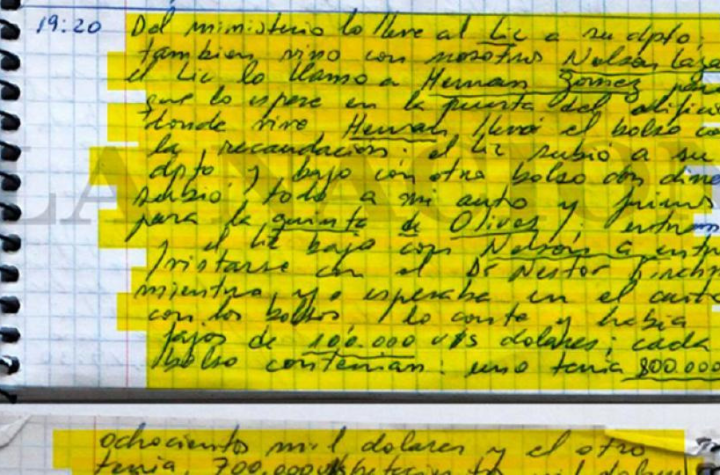 19:20 Del ministerio lo lleve al Lic a su dpto,
tambien vino con nosotros Nelson Laza
el Lic lo llamo a Hernan Gomez para
que lo espere en la puerta del edificio
donde vive Hernan llevó el bolso co
la recaudación; el Lic subió a su
dpto y bajo con otro bolso con dine
subio todo a mi auto y fuimos
para la quinta de Olivos; entramos
y el Lic bajo con Nelson a entre
vistarse con el Dr Nestor Kirchn
mientras yo esperaba en el auto
con los bolsos, lo conte y habia
fajos de 100.000 U$S dolares; cada
bolso contenian: uno tenia 800.000
ochocientos mil dolares y el otro
tenia 700.000 U$S setecientos mil dolares
LA NACION